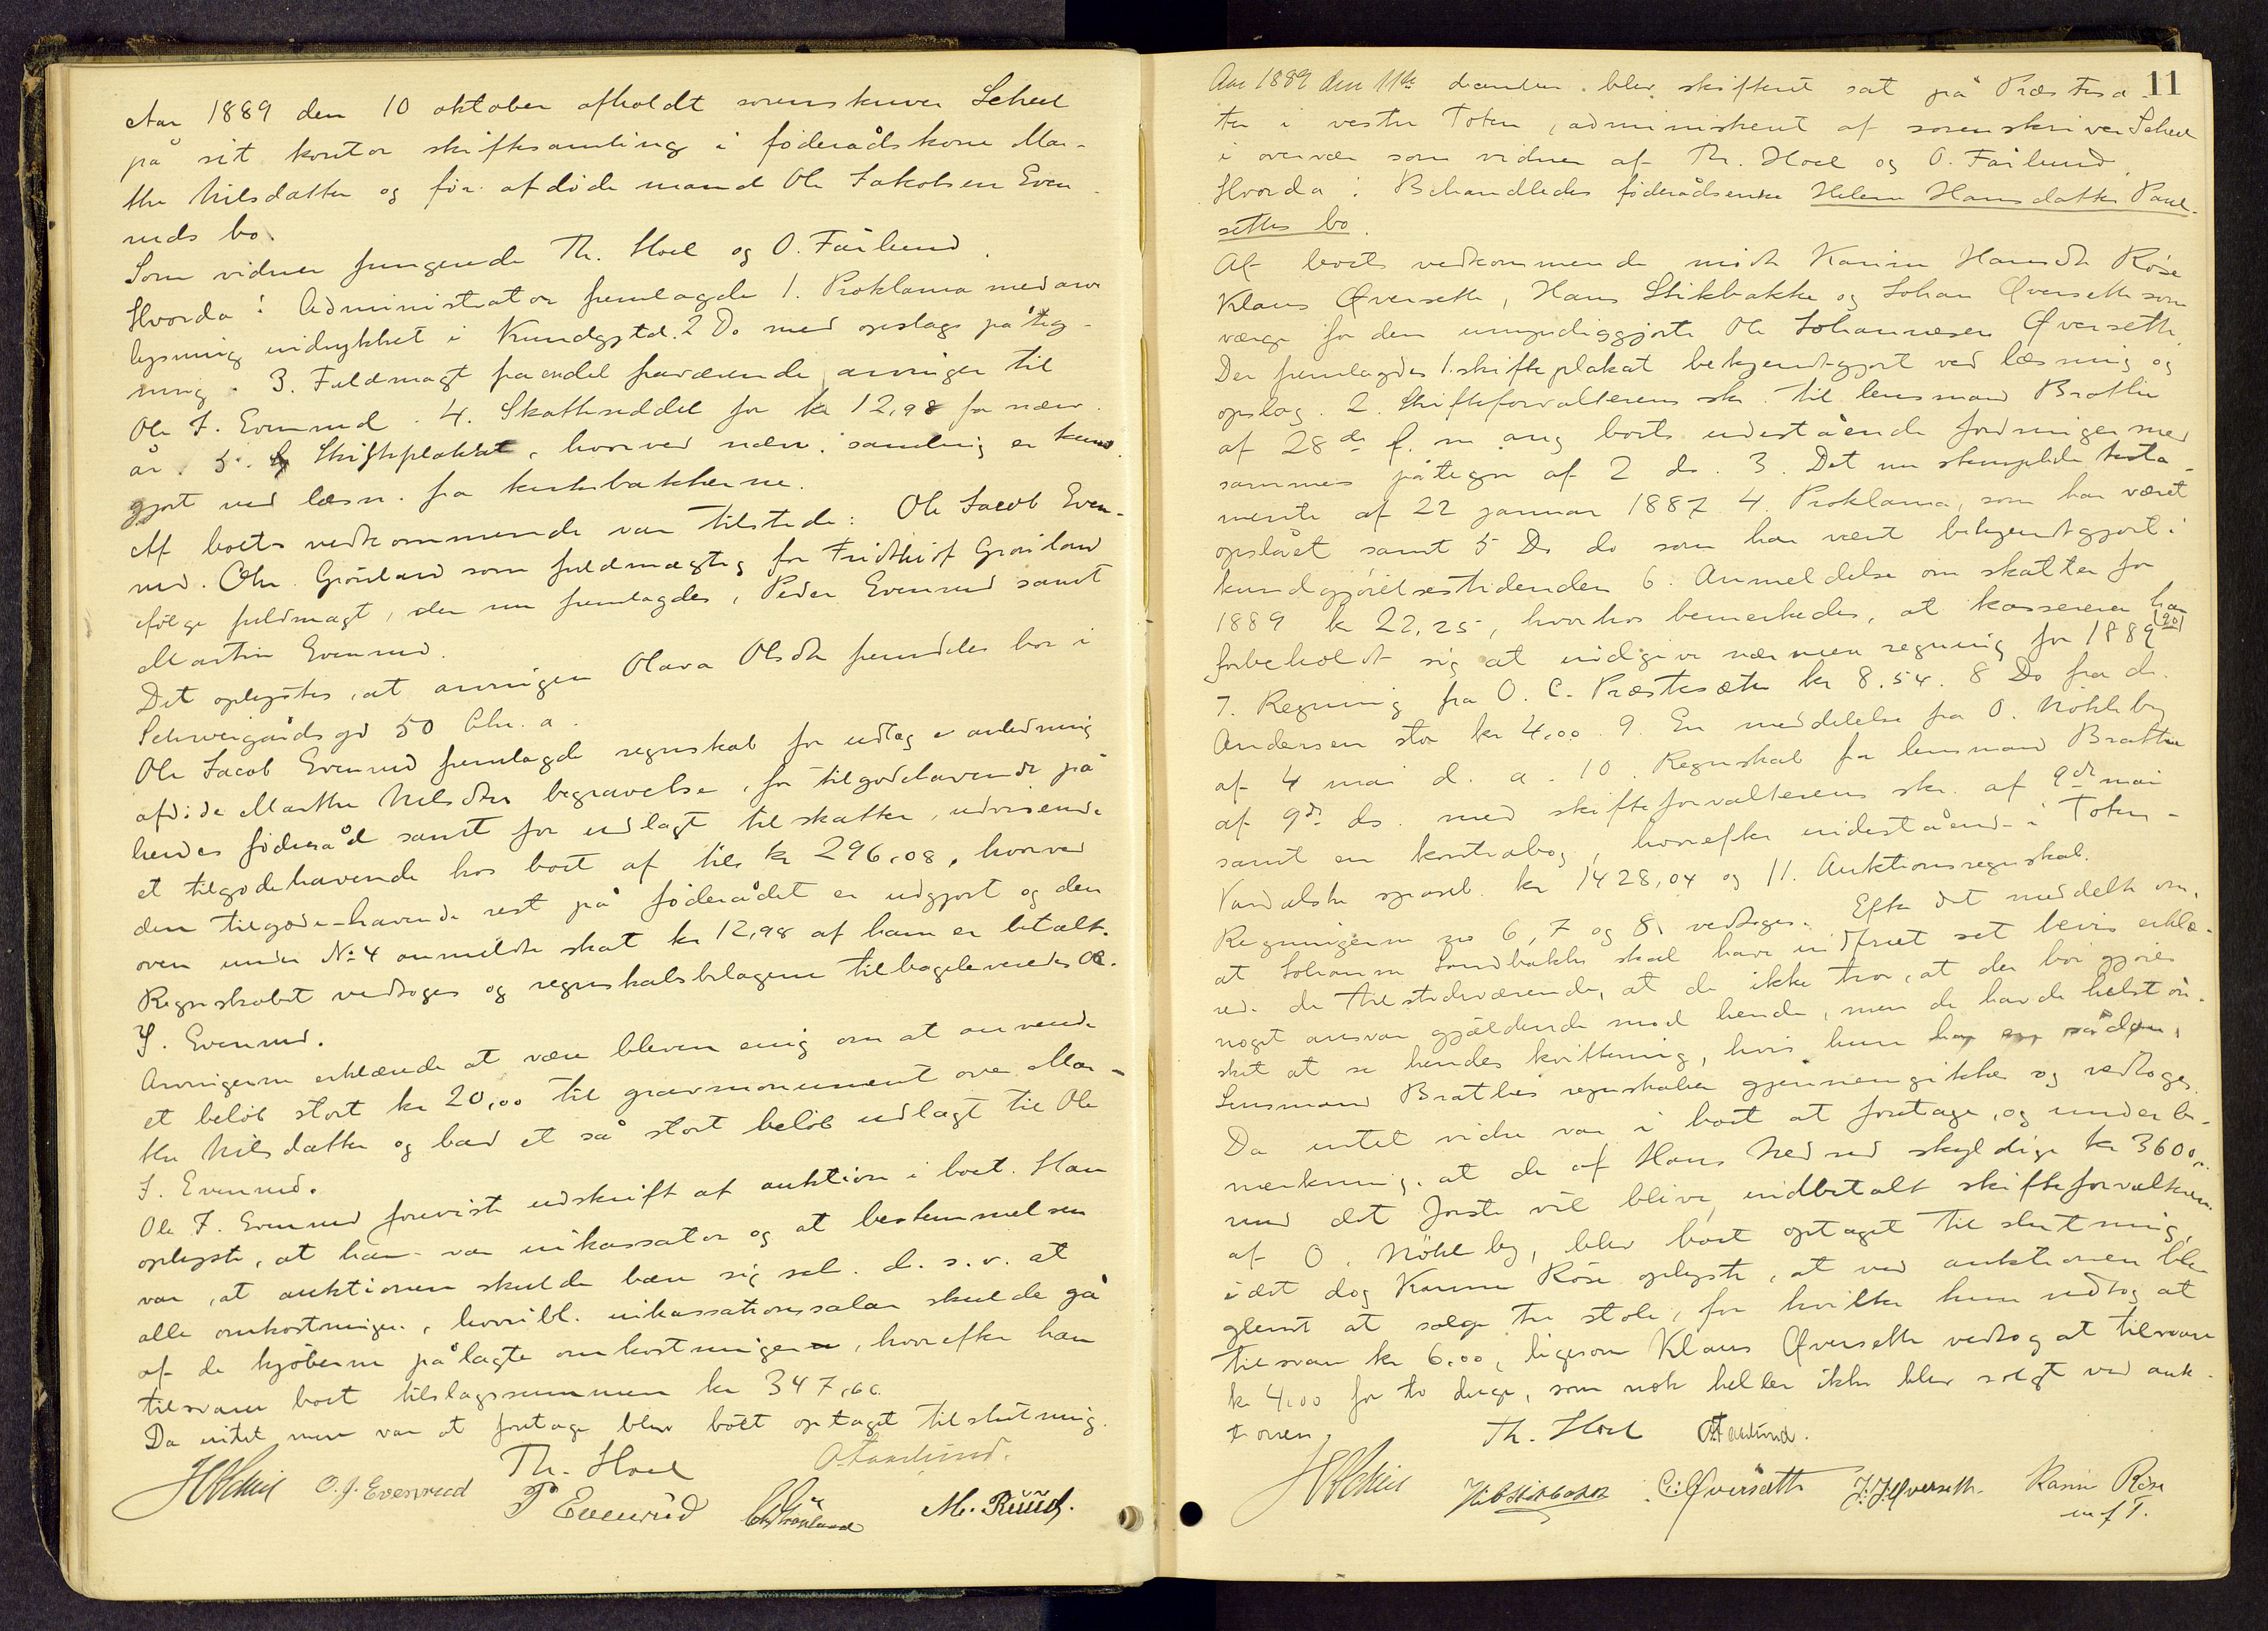 Aar 1889 den 10 oktober afholdt sorenskriver Scheel
på sit kontor skiftesamling i föderådskone Mar-
the Nilsdatter og för afdöde mand Ole Jakobsen Even-
ruds bo.
Som vidner fungerede Th. Hoel og O. Faålund.
Hvorda: Administrator fremlagde 1. Proklama med anv
lysning indrykket i Kundgstd. 2 Do med opslags påteg-
ning. 3. Fuldmagt fra endel fraværende arvinger til
Ole J. Evenrud. 4. Skatteseddel for kr 12,98 for nærv.
år. 5. Skifteplakat, hvorved nærv. samling er kund-
gjort ved læsn. fra kirkebakkerne.
Af boets vedkommende var tilstede: Ole Jacob Even-
rud. Chr. Grönland som fuldmægtig for Fridthiof Grönland
ifölge fuldmagt, der nu fremlagdes, Peder Evenrud samt
Martin Evenrud.
Det oplystes, at arvingen Olava Olsdtr fremdeles bor i
Schweigårdsgd 50 Chr. a.
Ole Jacob Evenrud fremlagde regnskab for udlæg i anledning
afdöde Marthe Nilsdtrs begravelse, for tilgodehavende på
hendes föderåd samt for udlagt til skatter, udvisende
et tilgodehavende hos boet af tils kr 296,08, hvorved
den tilgode-havende rest på föderådet er udgjort og den
oven under No 4 anmeldte skat kr 12,98 af ham er betalt.
Regnskabet vedtoges og regnskabsbilagene tilbageleveredes Ole
J. Evenrud.
Arvingerne erklærede at være bleven enig om at anvende
et belöb stort kr 20,00 til gravmonument over Mar-
the Nilsdatter og bad et så stort belöb udlagt til Ole
J. Evenrud.
Ole J. Evenrud foreviste udskrift af auktion i boet. Han
oplyste, at han var inkassator og at bestemmelsen
var, at auktionen skulde bære sig selv. d. s. v. at
alle omkostninger, hvoribl. inkassationssalær skulde gå
af de kjöberne pålagte omkostninger, hvorefter han
tilsvarer boet tilslagssummen kr 347,66
Da intet mere var at foretage blev boet optaget til slutning.
Th. Hoel O. Faalund.
O. J. Evenrud P Evenrud Chr Grönland M. Ruud.
11
Aar 1889 den 11te december blev skifteret sat på Præstesæ-
ter i vestre Toten, administreret af sorenskriver Scheel
i overvær som vidner af Th. Hoel og O. Faålund.
Hvorda: Behandledes föderådsenke Helene Hansdatter Paul-
settes bo.
Af boets vedkommende mödte Karine Hansdtr Röse
Klaus Øversette, Hans Stikbakke og Johan Øversette som
værge for den umyndiggjorte Ole Johannesen Øversette
Der fremlagdes 1. skifteplakat bekjendtgjort ved læsning og
opslag. 2. Skifteforvalterens skr. til lensmand Brathe
af 28de f. m ang boets udestående fordringer med
sammes påtegn af 2 ds. 3. Det nu stemplede testa-
mente af 22 januar 1887 4. Proklama, som har været
opslået samt 5 Do do som har vært bekjendtgjort i
kundgjörelsestidenden 6. Anmeldelse om skatter for
1889 kr 22,25, hvorhos bemerkedes, at kassereren har
forbeholdt sig at indgive nærmere regning for 1889 [90]
7. Regning fra O. C. Præstesæter kr 8.54. 8 Do fra do
Andersen stor kr 4,00 9. En meddelelse fra O. Nökleby
af 4 mai d. a. 10. Regnskab fra lensmand Brathe
af 9de ds. med skifteforvalterens skr. af 9de mai
samt en kontrabog, hvorefter indestående i Toten-
Vardalske spareb. kr 1428,04 og 11. Auktionsregnskab.
Regningerne no 6, 7 og 8 vedtoges. Efter det meddelte om,
at Johanne Sandbakke skal have indfriet sit bevis erklæ-
rede de tilstedeværende, at de ikke tror, at der bör gjöres
noget ansvar gjældende mod hende, men de havde helst ön-
sket at se hendes kvittering, hvis hun har en sådan.
Lensmand Brathes regnskaber gjennemgikkes og vedtoges.
Da intet videre var i boet at foretage, og under be-
merkning, at de af Hans Nedrud skyldige kr 3600
med det förste vil blive indbetalt skifteforvalteren
af O. Nökleby, blev boet optaget til slutning,
idet dog Karine Röse oplyste, at ved auktionen blev
glemt at sælge tre stole, for hvilke hun vedtog at
tilsvare kr 6,00, ligesom Klaus Øversette vedtog at tilsvare
kr 4,00 for to duge, som nok heller ikke blev solgt ved auk-
tionen.
Th. Hoel O. Faalund.
H. Stikbakke C. Øversætte J. J. Øversette. Karine Röse
m f T.